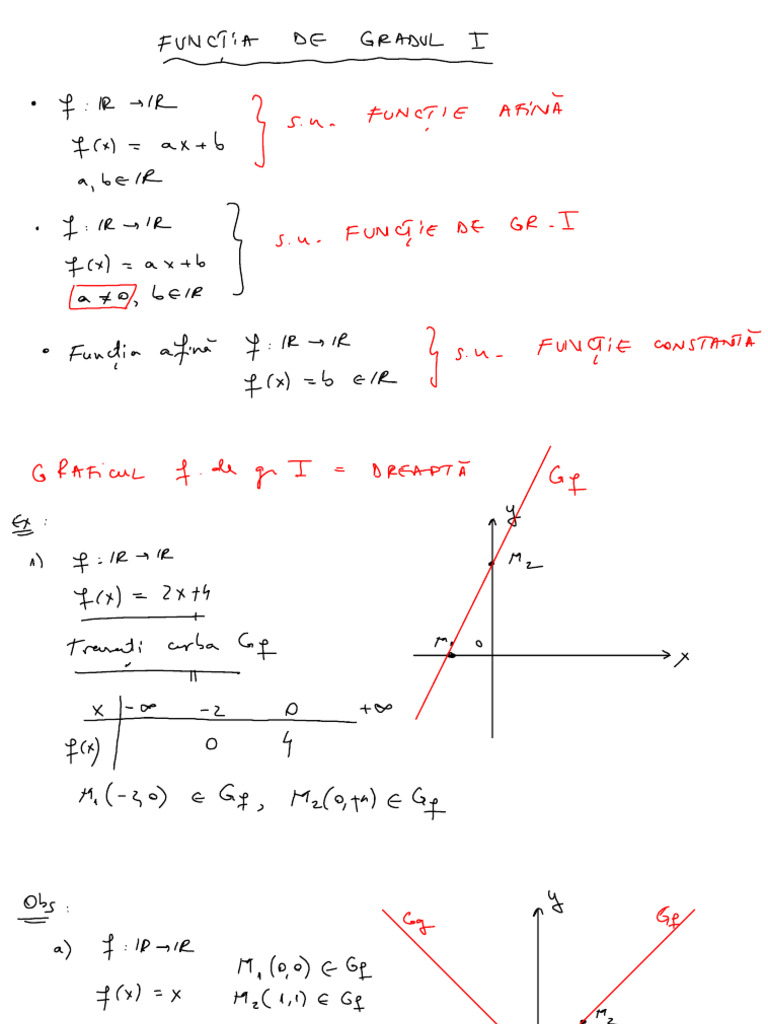 FUNCȚIA DE GRADUL I
• f : IR → IR
f(x) = ax + b
a, b ∈ IR
} s.u. FUNCȚIE AFINĂ
• f : IR → IR
f(x) = ax + b
a ≠ 0, b ∈ IR
} s.u. FUNCȚIE DE GR. I
• Funcția afină f : IR → IR
f(x) = b ∈ IR
} s.u. FUNCȚIE CONSTANTĂ
GRAFICUL f. de gr I = DREAPTĂ
Gf
Ex:
1) f : IR → IR
f(x) = 2x + 4
Trasați curba Gf
x | -∞ -2 0 +∞
f(x) | 0 4
M₁(-2,0) ∈ Gf, M₂(0,+4) ∈ Gf
y
M₂
M₁ 0
x
Obs:
a) f : IR → IR
f(x) = x
M₁(0,0) ∈ Gf
M₂(1,1) ∈ Gf
Gg
y
Gf
M₂